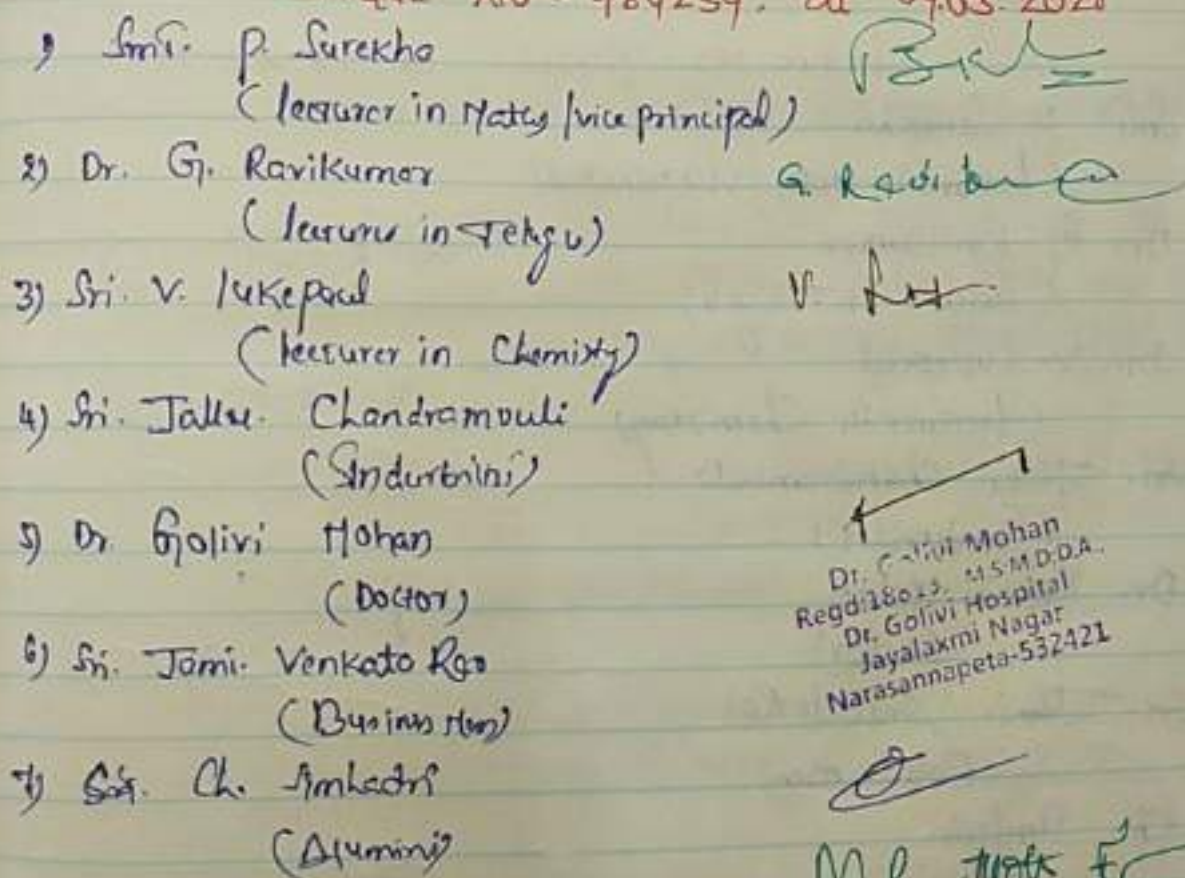 484239. dt 07.03.2020
1) Smt. P. Surekha
(lecturer in Maths /vice principal)
2) Dr. G. Ravikumar G. Ravikumar
(lecturer in Telugu)
3) Sri. V. lukepaul V.
(lecturer in Chemistry)
4) Sri. Jallu. Chandramouli
5) Dr. Golivi Mohan
(Doctor)
Dr. Golivi Mohan
M.S.M.D.D.A.,
Dr. Golivi Hospital
Jayalaxmi Nagar
Narasannapeta-532421
6) Sri. Jami. Venkata Rao
(Business Men)
7) Sri. Ch. Simhadri
(Alumini)